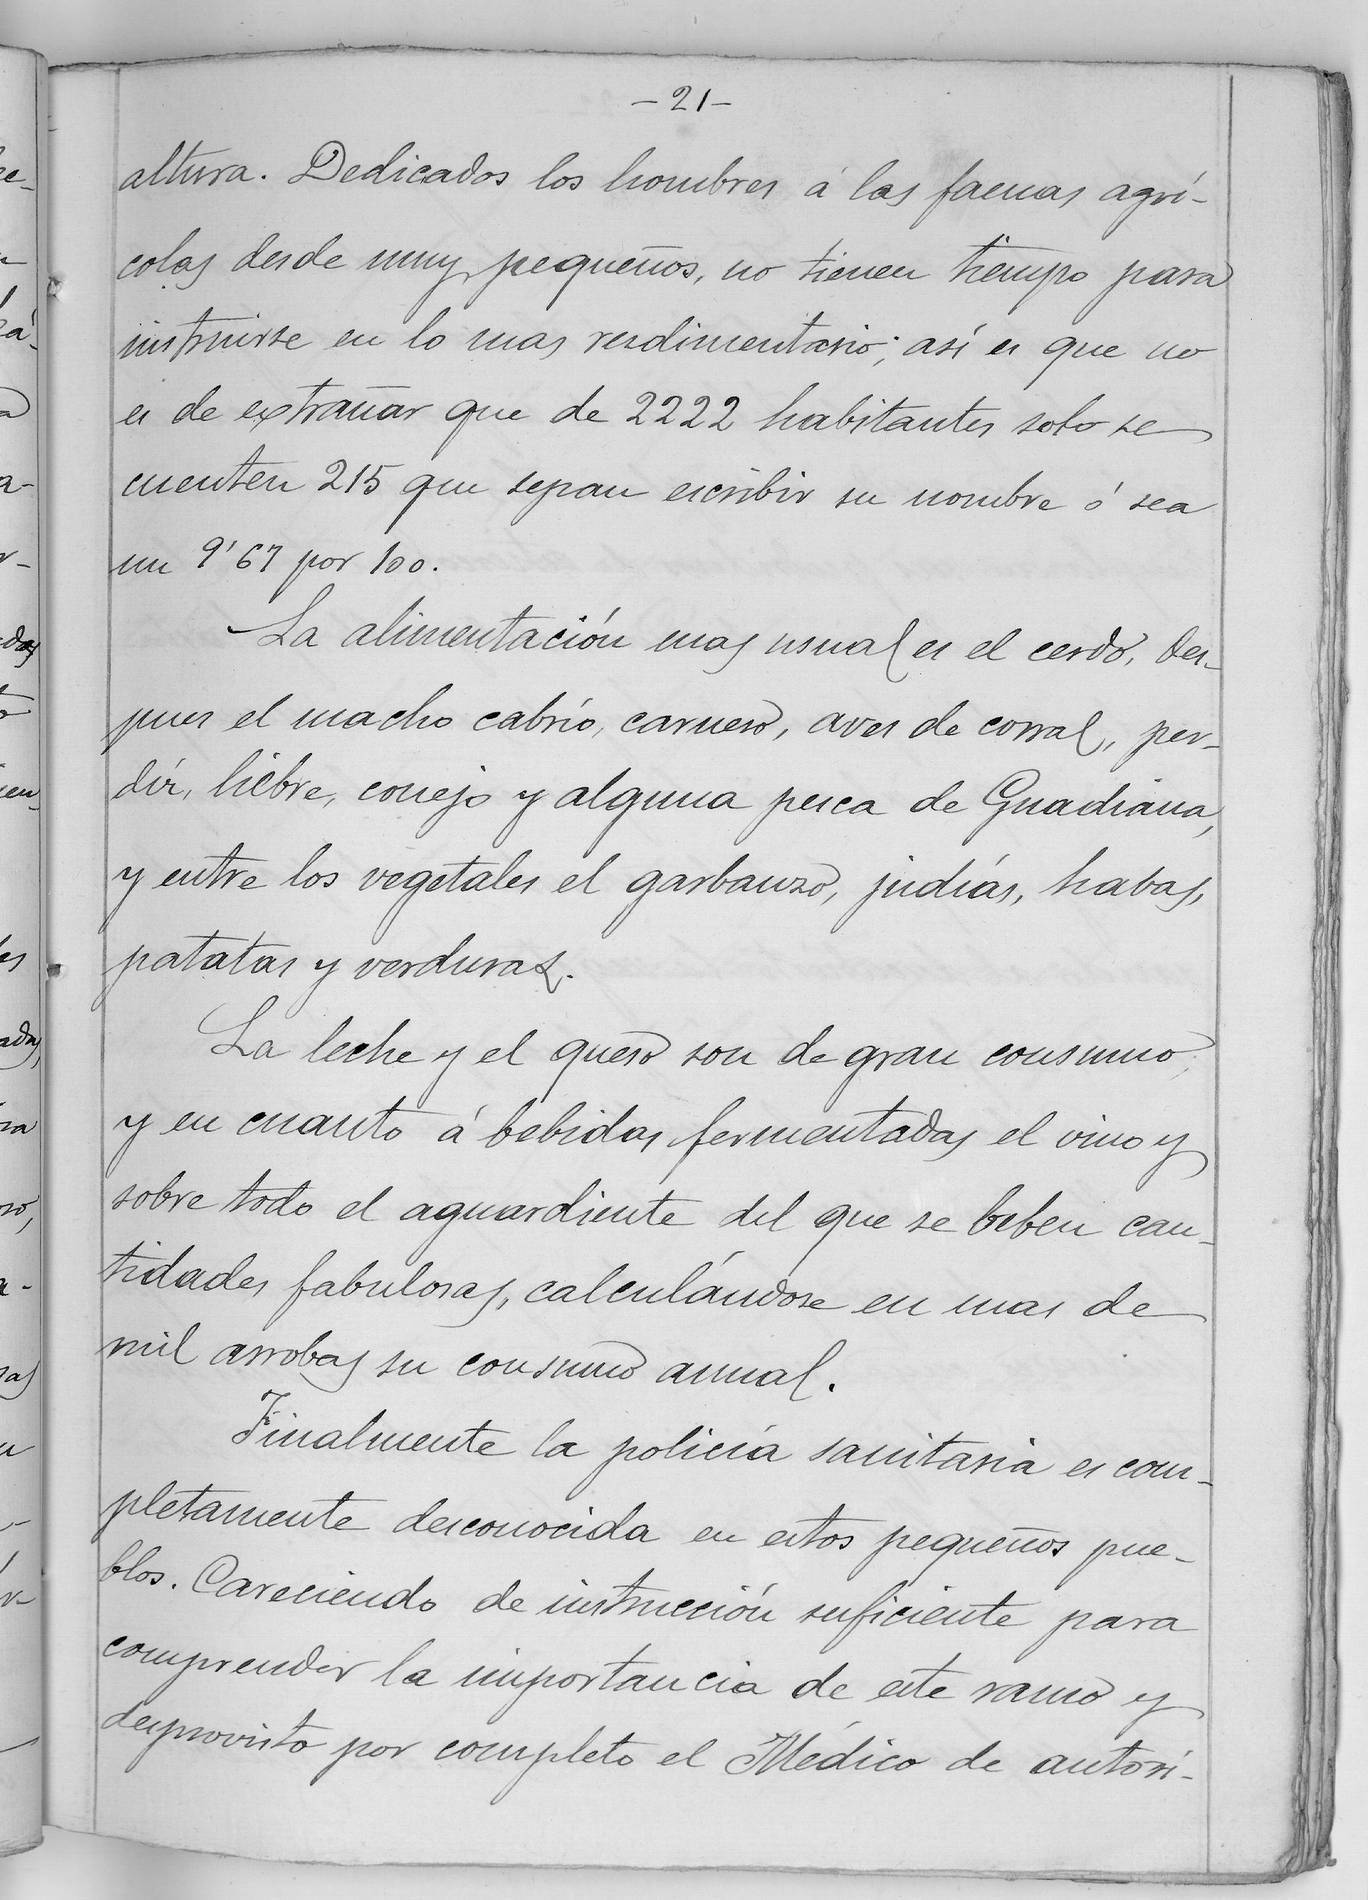 -21-
altura. Dedicados los hombres á las faenas agrí-
colas desde muy pequeños, no tienen tiempo para
instruirse en lo mas resdimentario; así es que no
es de extrañar que de 2222 habitantes solo se
cuenten 215 que sepan escribir su nombre ó sea
un 9'67 por 100.
La alimentación mas usual es el cerdo, des-
pues el macho cabrío, carnero, aves de corral, per-
díz, liebre, conejo y alguna pesca de Guadiana,
y entre los vegetales el garbanzo, judías, habas,
patatas y verduras.
La leche y el queso son de gran consumo,
y en cuanto á bebidas fermentadas el vino y
sobre todo el aguardiente del que se beben can-
tidades fabulosas, calculándose en mas de
mil arrobas su consumo anual.
Finalmente la policía sanitaria es com-
pletamente desconocida en estos pequeños pue-
blos. Careciendo de instrucción suficiente para
comprender la importancia de este ramo y
desprovisto por completo el Médico de autori-